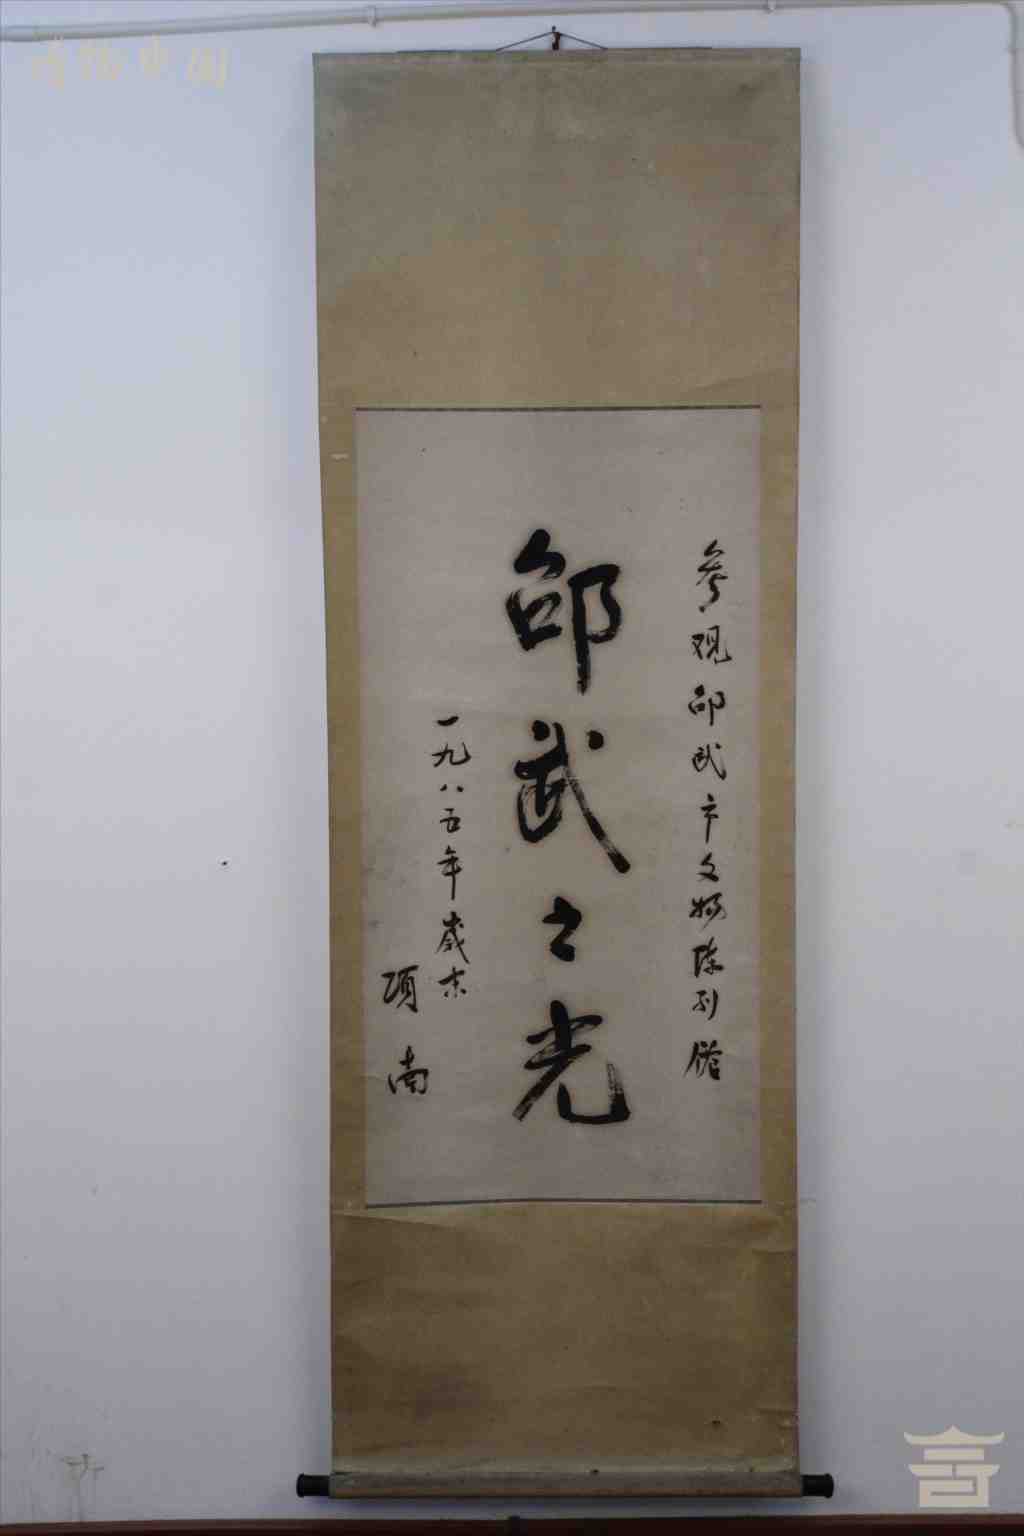 参观邵武市文物陈列馆
邵武之光
一九八五年岁末
项南